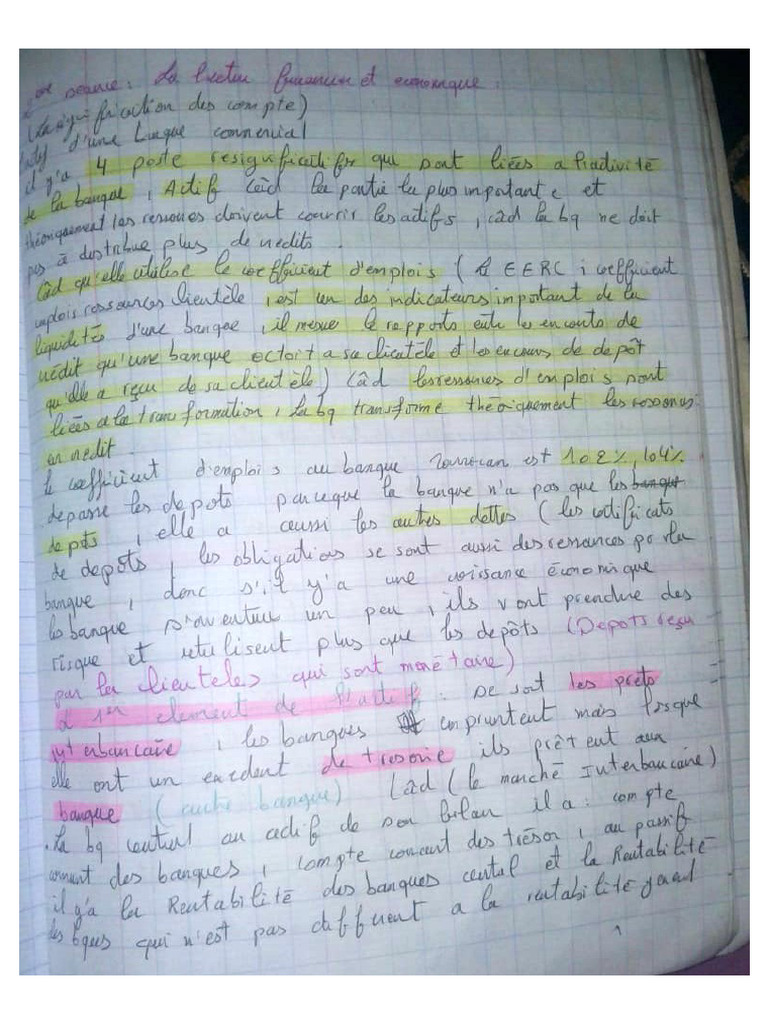 séance : La lecture financière et economique :
(la signification des compte)
d'une banque commercial
il y'a 4 poste resignificatifs qui sont liées a l'activité
de la banque, Actif (càd la partie la plus importante et
théoriquement les ressources doivent couvrir les actifs, càd la bq ne doit
pas à distribue plus de crédits.
Càd qu'elle utilise le coefficient d'emplois (le CERC : coefficient
emplois ressources clientèle, est un des indicateurs important de la
liquidités d'une banque, il mesure le rapports entre les encours de
crédit qu'une banque octoit a sa clientèle et les encours de depôt
qu'elle a reçu de sa clientèle) Càd les ressources d'emplois sont
liées a la transformation, la bq transforme théoriquement les ressources
en crédit.
le coefficient d'emplois au banque marocain est 102%, 104%
depasse les depots parceque la banque n'a pas que les
depôts, elle a aussi les autres dettes (les certificats
de depôts, les obligations se sont aussi des ressources pour la
banque, donc s'il y'a une croissance économique
les banque s'aventure un peu, ils vont prendre des
risque et utilisent plus que les depôts (Depots reçu
par la clienteles qui sont monétaire)
Le 1er element de l'actif : se sont les prets
interbancaire, les banques empruntent mais lorsque
elle ont un excedent de tresorie ils prêtent aux
banque (autre banque) Càd (le marché Interbancaire)
. La bq central au actif de son bilan il a : compte
courant des banques, compte courant des trésor, au passif
il y'a la Rentabilité des banques cental et la Rentabilité
les bques qui n'est pas different a la rentabilité general
1